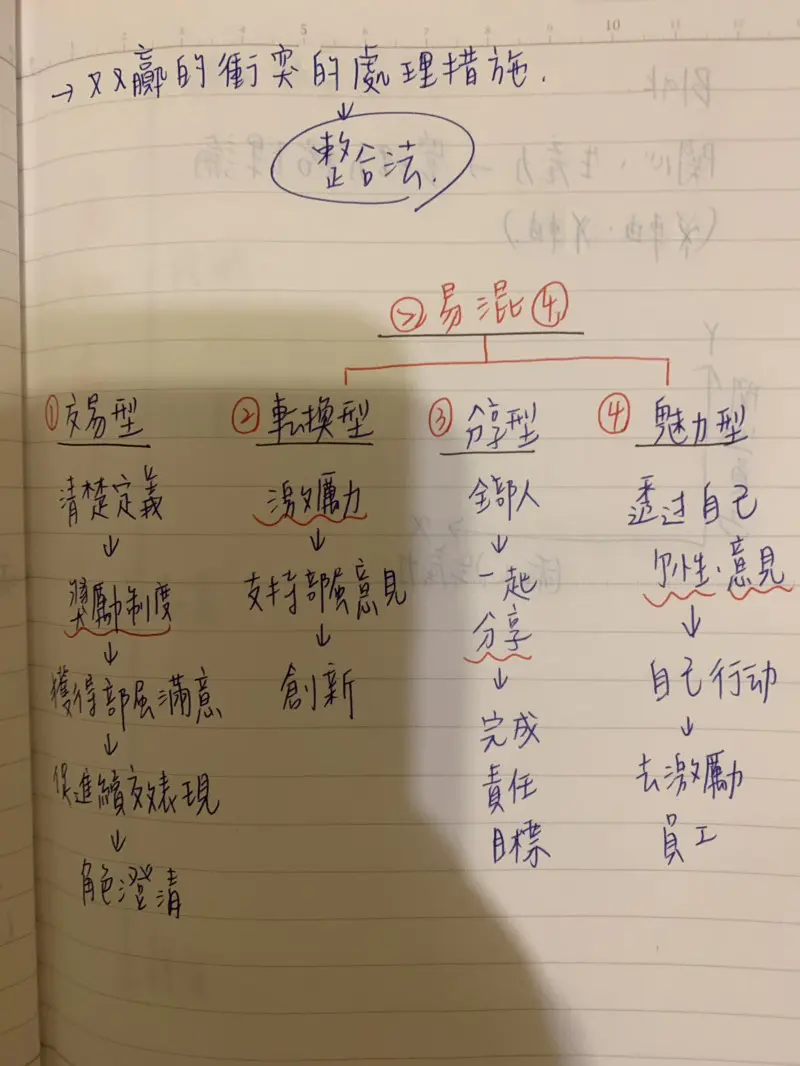 →双贏的衝突的處理措施.
↓
整合法.
②易混④
①交易型
清楚定義
↓
獎勵制度
↓
獲得部屬滿意
↓
促進績效表現
↓
角色澄清
②転換型
激勵力
↓
支持部屬意見
↓
創新
③分享型
全部人
↓
一起
分享
↓
完成
責任
目標
④魅力型
透过自己
個性.意見
↓
自己行动
↓
去激勵
員工